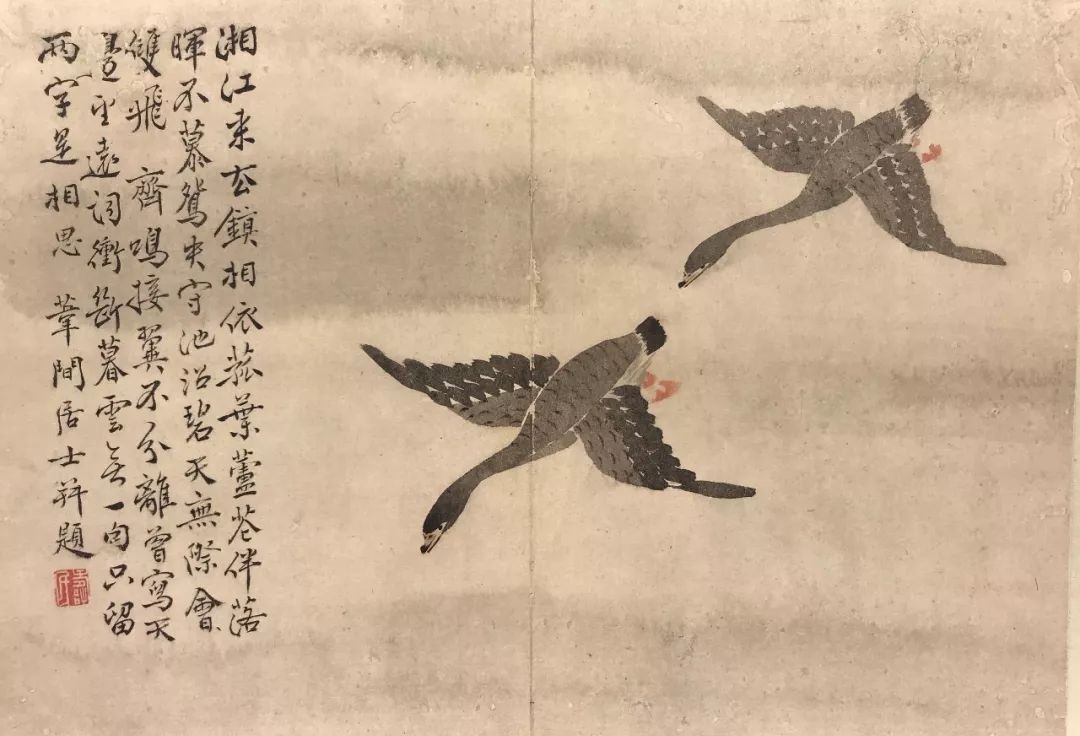 湘江来去鎮相依菰葉蘆花伴落
暉不慕鴛央守池沼碧天無際會
雙飛 齊鳴接翼不分離曾寫天
望遠詞衝斷暮雲無一句只留
兩字是相思 葦間居士并題
壽民